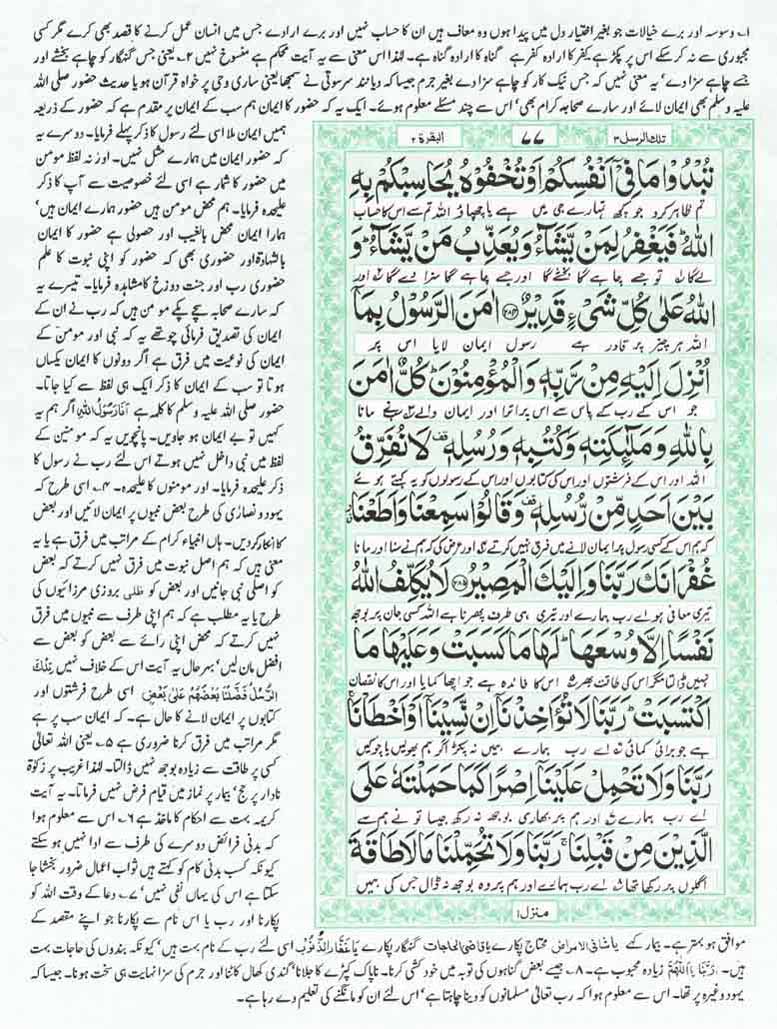 ۱۔ وسوسہ اور برے خیالات جو بغیر اختیار دل میں پیدا ہوں وہ معاف ہیں ان کا حساب نہیں اور برے ارادے جس میں انسان عمل کرنے کا قصد بھی کرے مگر کسی
مجبوری سے نہ کر سکے اس پر پکڑ ہے کفر کا ارادہ کفر ہے گناہ کا ارادہ گناہ ہے۔ لہٰذا اس معنی سے یہ آیت محکم ہے منسوخ نہیں ۲۔ یعنی جس گنہگار کو چاہے بخشے اور
جسے چاہے سزا دے' یہ معنی نہیں کہ جس نیک کار کو چاہے سزا دے بغیر جرم جیسا کہ دیانند سرسوتی نے سمجھا یعنی ساری وحی پر خواہ قرآن ہو یا حدیث حضور صلی اللہ
علیہ وسلم بھی ایمان لائے اور سارے صحابہ کرام بھی' اس سے چند مسئلے معلوم ہوئے۔ ایک یہ کہ حضور کا ایمان ہم سب کے ایمان پر مقدم ہے کہ حضور کے ذریعہ
تلك الرسل ۳
۷۷
البقرة ۲
تُبْدُوْا مَا فِیْۤ اَنْفُسِكُمْ اَوْ تُخْفُوْهُ یُحَاسِبْكُمْ بِهِ
تم ظاہر کرو جو کچھ تمہارے جی میں ہے یا چھپاؤ اللہ تم سے اس کا حساب
اللّٰهُ ؕ فَیَغْفِرُ لِمَنْ یَّشَآءُ وَ یُعَذِّبُ مَنْ یَّشَآءُ ؕ وَ
لے گا تو جسے چاہے گا بخشے گا اور جسے چاہے گا سزا دے گا اور
اللّٰهُ عَلٰى كُلِّ شَیْءٍ قَدِیْرٌ ۝۲۸۴ اٰمَنَ الرَّسُوْلُ بِمَاۤ
اللہ ہر چیز پر قادر ہے رسول ایمان لایا اس پر
اُنْزِلَ اِلَیْهِ مِنْ رَّبِّهٖ وَ الْمُؤْمِنُوْنَ ؕ كُلٌّ اٰمَنَ
جو اس کے رب کے پاس سے اس پر اترا اور ایمان والے سب نے مانا
بِاللّٰهِ وَ مَلٰٓىِٕكَتِهٖ وَ كُتُبِهٖ وَ رُسُلِهٖ ۫ لَا نُفَرِّقُ
اللہ اور اس کے فرشتوں اور اس کی کتابوں اور اس کے رسولوں کو یہ کہتے ہوئے
بَیْنَ اَحَدٍ مِّنْ رُّسُلِهٖ ۫ وَ قَالُوْا سَمِعْنَا وَ اَطَعْنَا
کہ ہم اس کے کسی رسول پر ایمان لانے میں فرق نہیں کرتے اور عرض کی کہ ہم نے سنا اور مانا
غُفْرَانَكَ رَبَّنَا وَ اِلَیْكَ الْمَصِیْرُ ۝۲۸۵ لَا یُكَلِّفُ اللّٰهُ
تیری معافی ہو اے رب ہمارے اور تیری ہی طرف پھرنا ہے اللہ کسی جان پر بوجھ
نَفْسًا اِلَّا وُسْعَهَا ؕ لَهَا مَا كَسَبَتْ وَ عَلَیْهَا مَا
نہیں ڈالتا مگر اس کی طاقت بھر اس کا فائدہ ہے جو اچھا کمایا اور اس کا نقصان
اكْتَسَبَتْ ؕ رَبَّنَا لَا تُؤَاخِذْنَاۤ اِنْ نَّسِیْنَاۤ اَوْ اَخْطَاْنَا ۚ
ہے جو برائی کمائی اے رب ہمارے ہمیں نہ پکڑ اگر ہم بھولیں یا چوکیں
رَبَّنَا وَ لَا تَحْمِلْ عَلَیْنَاۤ اِصْرًا كَمَا حَمَلْتَهٗ عَلَى
اے رب ہمارے اور ہم پر بھاری بوجھ نہ رکھ جیسا تو نے ہم سے
الَّذِیْنَ مِنْ قَبْلِنَا ۚ رَبَّنَا وَ لَا تُحَمِّلْنَا مَا لَا طَاقَةَ
اگلوں پر رکھا تھا اے رب ہمارے اور ہم پر وہ بوجھ نہ ڈال جس کی ہمیں
منزل ۱
ہمیں ایمان ملا اسی لئے رسول کا ذکر پہلے فرمایا۔ دوسرے یہ
کہ حضور ایمان میں ہمارے مثل نہیں۔ اور نہ لفظ مومن
میں حضور کا شمار ہے اسی لئے خصوصیت سے آپ کا ذکر
علیحدہ فرمایا۔ ہم محض مومن ہیں حضور ہمارے ایمان ہیں'
ہمارا ایمان محض بالغیب اور حصولی ہے حضور کا ایمان
بالشہادۃ اور حضوری بھی کہ حضور کو اپنی نبوت کا علم
حضوری رب اور جنت دوزخ کا مشاہدہ فرمایا۔ تیسرے یہ
کہ سارے صحابہ سچے پکے مومن ہیں کہ رب نے ان کے
ایمان کی تصدیق فرمائی چوتھے یہ کہ نبی اور مومن کے
ایمان کی نوعیت میں فرق ہے اگر دونوں کا ایمان یکساں
ہوتا تو سب کے ایمان کا ذکر ایک ہی لفظ سے کیا جاتا۔
حضور صلی اللہ علیہ وسلم کا کلمہ ہے اَنَا رَسُوْلُ اللّٰهِ اگر ہم یہ
کہیں تو بے ایمان ہو جاویں۔ پانچویں یہ کہ مومنین کے
لفظ میں نبی داخل نہیں ہوتے اس لئے رب نے رسول کا
ذکر علیحدہ فرمایا۔ اور مومنوں کا علیحدہ۔ ۴۔ اسی طرح کہ
یہود و نصاریٰ کی طرح بعض نبیوں پر ایمان لائیں اور بعض
کا انکار کر دیں۔ ہاں انبیاء کرام کے مراتب میں فرق ہے یا یہ
معنی ہیں کہ ہم اصل نبوت میں فرق نہیں کرتے کہ بعض
کو اصلی نبی جانیں اور بعض کو ظلی بروزی مرزائیوں کی
طرح یا یہ مطلب ہے کہ ہم اپنی طرف سے نبیوں میں فرق
نہیں کرتے کہ محض اپنی رائے سے بعض کو بعض سے
افضل مان لیں' بہرحال یہ آیت اس کے خلاف نہیں تِلْكَ
الرُّسُلُ فَضَّلْنَا بَعْضَهُمْ عَلٰى بَعْضٍ اسی طرح فرشتوں اور
کتابوں پر ایمان لانے کا حال ہے۔ کہ ایمان سب پر ہے
مگر مراتب میں فرق کرنا ضروری ہے ۵۔ یعنی اللہ تعالیٰ
کسی پر طاقت سے زیادہ بوجھ نہیں ڈالتا۔ لہٰذا غریب پر زکوٰۃ
نادار پر حج' بیمار پر نماز میں قیام فرض نہیں فرماتا۔ یہ آیت
کریمہ بہت سے احکام کا ماخذ ہے ۶۔ اس سے معلوم ہوا
کہ بدنی فرائض دوسرے کی طرف سے ادا نہیں ہو سکتے
کیونکہ کسب بدنی کام کو کہتے ہیں ثواب اعمال ضرور بخشا جا
سکتا ہے اس کی یہاں نفی نہیں' ۷۔ دعا کے وقت اللہ کو
پکارنا اور رب یا اس نام سے پکارنا جو اپنے مقصد کے
موافق ہو بہتر ہے۔ بیمار کہے یا شافی الامراض محتاج پکارے یا قاضی الحاجات گنہگار پکارے یا غفار الذنوب اسی لئے رب کے نام بہت ہیں' کیونکہ بندوں کی حاجات بہت
ہیں۔ رَبَّنَا یا اَللّٰهُمَّ زیادہ محبوب ہے۔ ۸۔ جیسے بعض گناہوں کی توبہ میں خود کشی کرنا۔ ناپاک کپڑے کا جلانا' گندی کھال کاٹنا اور جرم کی سزا نہایت ہی سخت ہونا۔ جیسا کہ
یہود وغیرہ پر تھا۔ اس سے معلوم ہوا کہ رب تعالیٰ مسلمانوں کو دینا چاہتا ہے' اس لئے ان کو مانگنے کی تعلیم دے رہا ہے۔